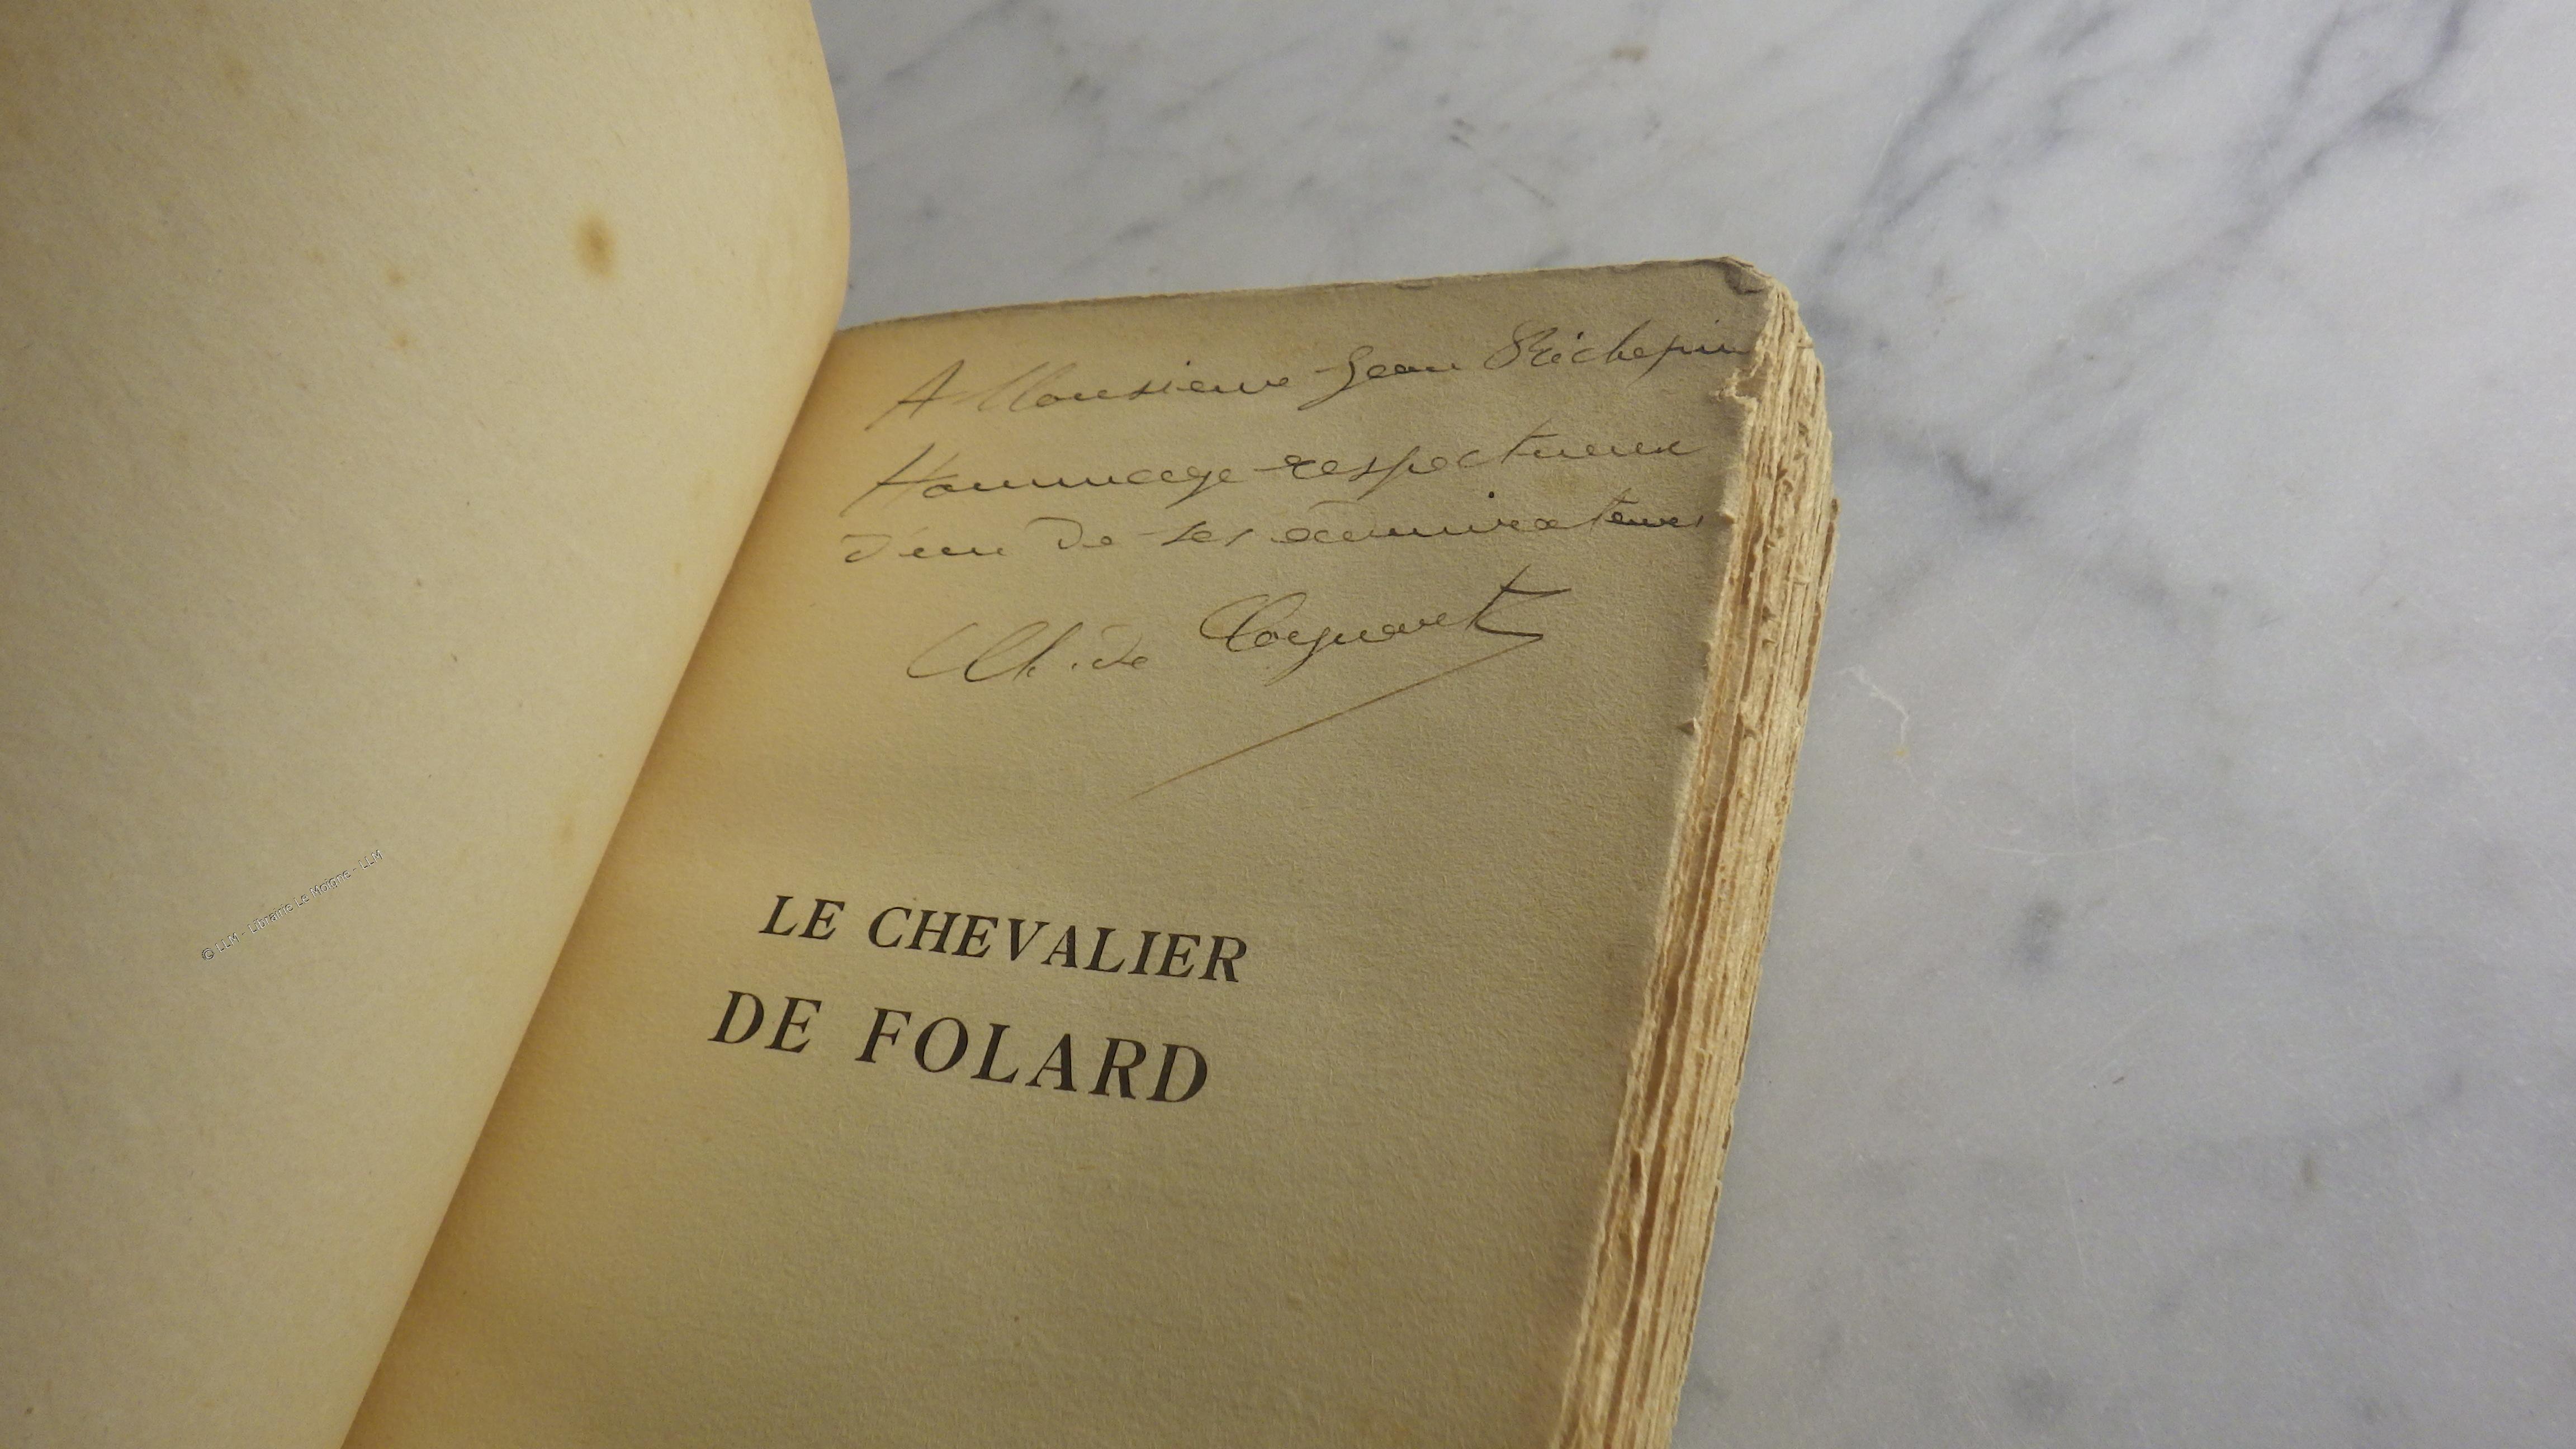 A Monsieur Jean Richepin
Hommage respectueux
d'un de ses admirateurs
Ch. de Coynart
LE CHEVALIER
DE FOLARD
© LLM - Librairie Le Moigne - LLM